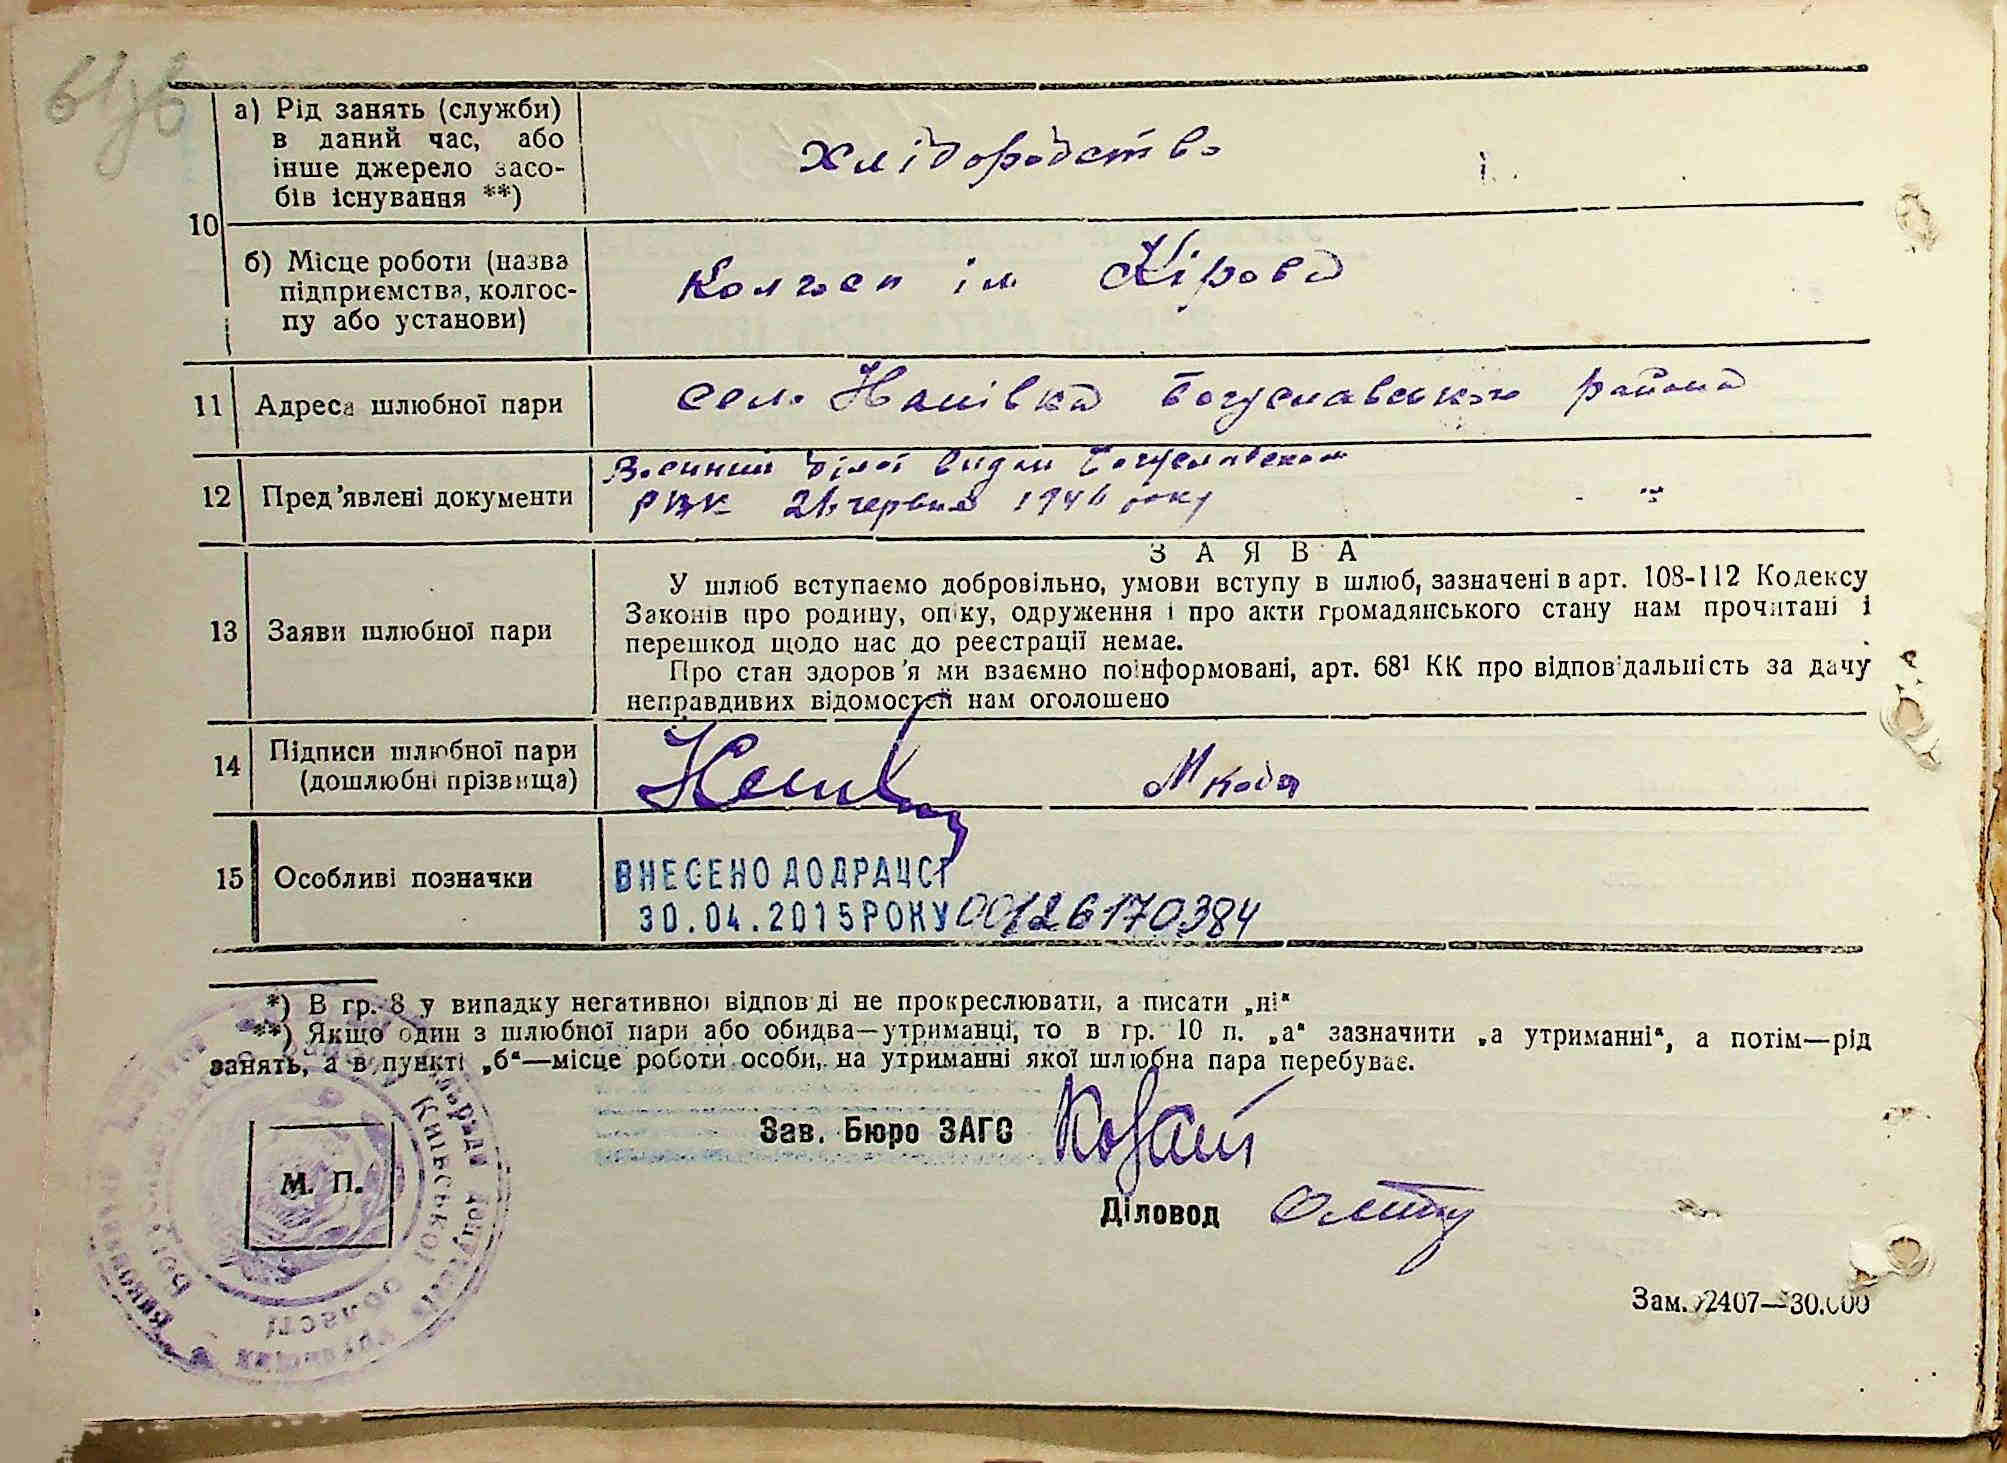 а) Рід занять (служби)
в даний час, або
інше джерело засо-
бів існування **)
хлібородство
10
б) Місце роботи (назва
підприємства, колгос-
пу або установи)
Колгосп ім Кірова
11 Адреса шлюбної пари
село Богуславського району
12 Пред'явлені документи
Воєнний білет видан Богуславским
РВК 21 червня 1946 року
13 Заяви шлюбної пари
ЗАЯВА
У шлюб вступаємо добровільно, умови вступу в шлюб, зазначені в арт. 108-112 Кодексу
Законів про родину, опіку, одруження і про акти громадянського стану нам прочитані і
перешкод щодо нас до реєстрації немає.
Про стан здоров'я ми взаємно поінформовані, арт. 68¹ КК про відповідальність за дачу
неправдивих відомостей нам оголошено
14 Підписи шлюбної пари
(дошлюбні прізвища)
15 Особливі позначки
ВНЕСЕНО ДО ДРАЦСГ
30.04.2015 РОКУ 00126170384
*) В гр. 8 у випадку негативної відповіді не прокреслювати, а писати „ні“
**) Якщо один з шлюбної пари або обидва—утриманці, то в гр. 10 п. „а“ зазначити „а утриманні“, а потім—рід
занять, а в пункті „б“—місце роботи особи, на утриманні якої шлюбна пара перебуває.
Зав. Бюро ЗАГС
М. П.
Київської області
Діловод
Зам. 2407—30.000